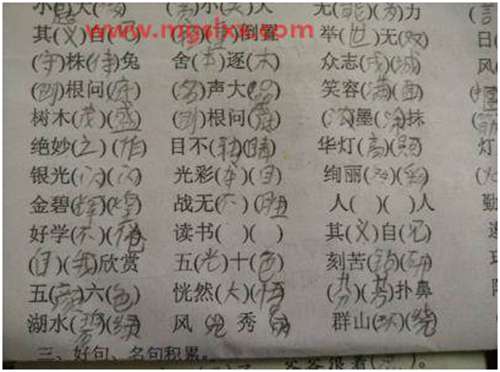 小( )大( ) ( )小( )大 无(能)( )力
其(义)自(见) ( )( )倒置 举(世)无(双) 日
(守)株(待)兔 舍(本)逐(末) 众志(成)(城) 风
(刨)根问(底) (名)声大( ) 笑容(满)(面)
树木(茂)(盛) (刨)根问( ) (浓)墨( )抹
绝妙(之)(作) 目不(转)(睛) 华灯(高)(照) 灯
银光(闪)(闪) 光彩(夺)(目) 绚丽(多)(彩)
金碧(辉)(煌) 战无(不)(胜) 人( )( )人 勤
好学(不)(倦) 读书( )( ) 其(义)自(见)
(自)(我)欣赏 五(光)十(色) 刻苦(钻)(研)
五(颜)六(色) 恍然(大)(悟) (芬)(芳)扑鼻
湖水(碧)(绿) 风 光 秀 丽 群山(环)(绕)
三、好句、名句积累。
爷爷很着